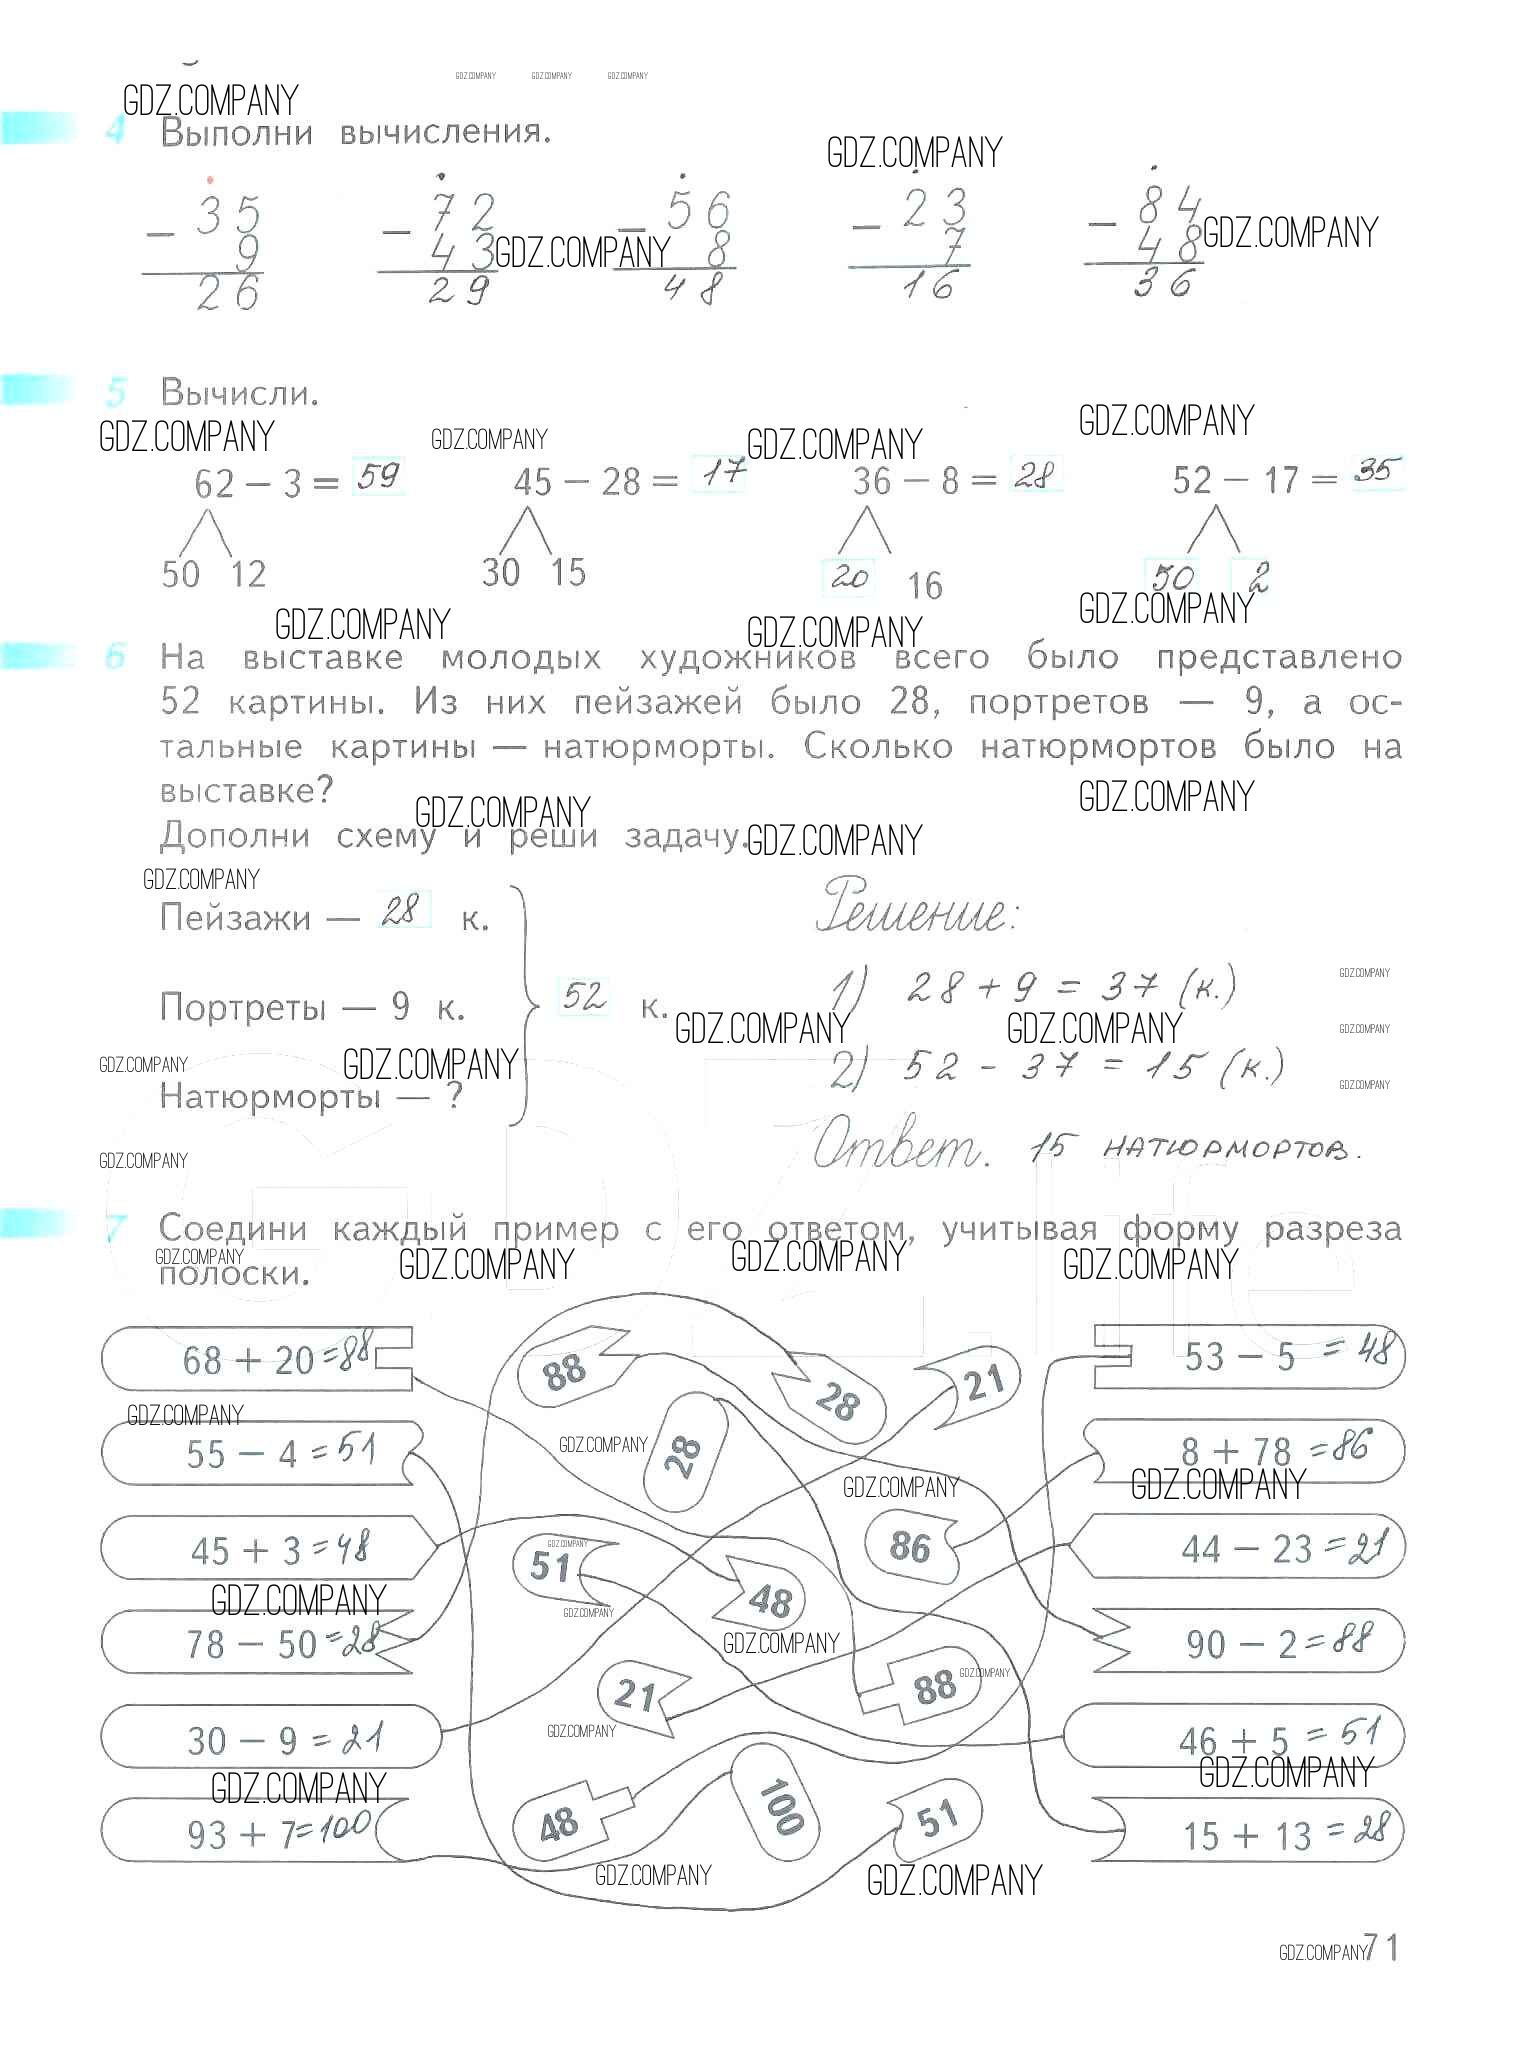 GDZ.COMPANY GDZ.COMPANY GDZ.COMPANY
GDZ.COMPANY
4 Выполни вычисления.
GDZ.COMPANY
35 72 56 23 84
− − − − −
9 43 8 7 48
GDZ.COMPANY GDZ.COMPANY
26 29 48 16 36
5 Вычисли.
GDZ.COMPANY GDZ.COMPANY GDZ.COMPANY GDZ.COMPANY
62 − 3 = 59 45 − 28 = 17 36 − 8 = 28 52 − 17 = 35
50 12 30 15 20 16 50 2
GDZ.COMPANY GDZ.COMPANY GDZ.COMPANY
6 На выставке молодых художников всего было представлено
52 картины. Из них пейзажей было 28, портретов — 9, а ос-
тальные картины — натюрморты. Сколько натюрмортов было на
выставке?
GDZ.COMPANY GDZ.COMPANY
Дополни схему и реши задачу.
GDZ.COMPANY
GDZ.COMPANY
Пейзажи — 28 к. Решение:
GDZ.COMPANY
Портреты — 9 к. 52 к. 1) 28 + 9 = 37 (к.)
GDZ.COMPANY GDZ.COMPANY GDZ.COMPANY
GDZ.COMPANY GDZ.COMPANY
2) 52 − 37 = 15 (к.)
GDZ.COMPANY
Натюрморты — ?
GDZ.COMPANY
Ответ. 15 натюрмортов.
GDZ.life
7 Соедини каждый пример с его ответом, учитывая форму разреза
GDZ.COMPANY GDZ.COMPANY GDZ.COMPANY GDZ.COMPANY
полоски.
68 + 20 = 88 88 28 21 53 − 5 = 48
GDZ.COMPANY
55 − 4 = 51 28 8 + 78 = 86
GDZ.COMPANY GDZ.COMPANY GDZ.COMPANY
45 + 3 = 48 51 86 44 − 23 = 21
GDZ.COMPANY
GDZ.COMPANY GDZ.COMPANY
48
78 − 50 = 28 90 − 2 = 88
GDZ.COMPANY
21 88
GDZ.COMPANY
30 − 9 = 21 46 + 5 = 51
GDZ.COMPANY
GDZ.COMPANY GDZ.COMPANY
93 + 7 = 100 48 100 51 15 + 13 = 28
GDZ.COMPANY GDZ.COMPANY
GDZ.COMPANY
71